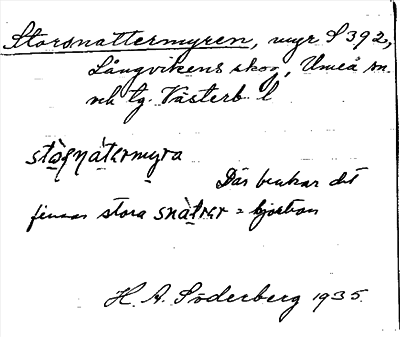 Storsnattermyren, myr S 392,
Långvikens skog, Umeå sn.
och tg. Västerb l
stǫgnatermyra
Där brukar det
finnas stora snatrer = hjortron
H. A. Söderberg 1935.